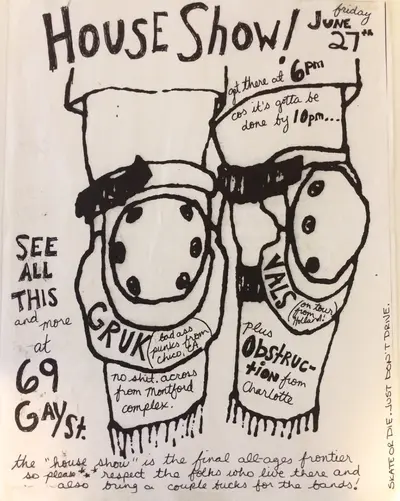 HOUSE SHOW!
friday
JUNE
27th
get there at 6pm
cos it's gotta be
done by 10pm...
SEE
ALL
THIS
and more
at
69
GAY St.
GRUK
(badass
punks from
Chico, CA.)
no shit. across
from Montford
complex.
VALS
(on tour
from
Holland!)
plus
OBSTRUC-
TION from
Charlotte
SKATE OR DIE. JUST DON'T DRIVE.
the "house show" is the final all-ages frontier
so *please* respect the folks who live there and
also bring a couple bucks for the bands!